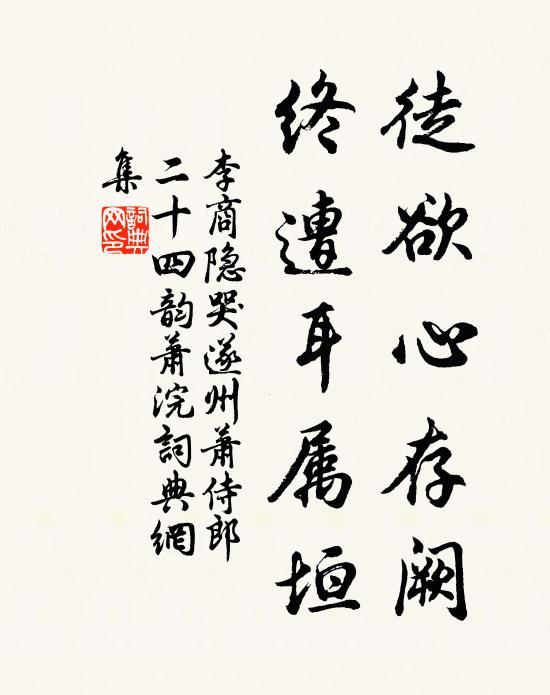 徒欲心存阙
终遭耳属垣
李商隐哭遂州萧侍郎
二十四韵萧浣詞典網
集
詞典
网印